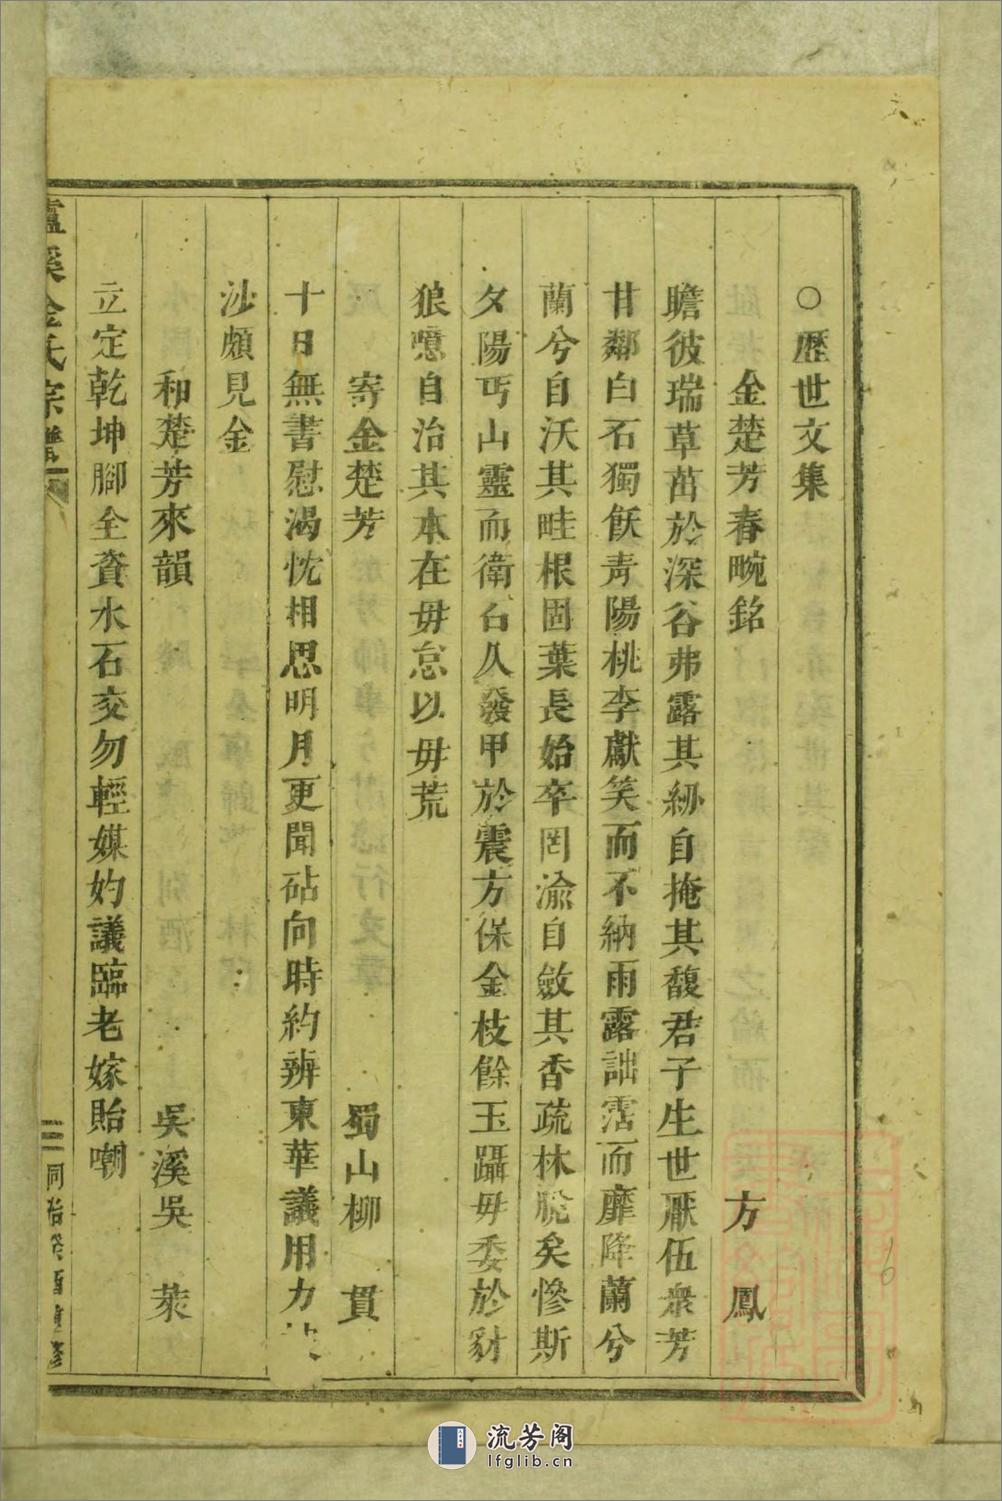 ○歷世文集
金楚芳春畹銘 方鳳
瞻彼瑞草茁於深谷弗露其紛自掩其馥君子生世厭伍衆芳
甘鄰白石獨飫青陽桃李獻笑而不納雨露詘霑而靡降蘭兮
蘭兮自沃其畦根固葉長始卒罔渝自斂其香疏林脫矣慘斯
夕陽丐山靈而衛召人發甲於震方保金枝餘玉躡毋委於豺
狼噫自治其本在毋怠以毋荒
寄金楚芳 蜀山柳貫
十日無書慰渴忱相思明月更聞砧向時約辨東華議用力
沙頗見金
和楚芳來韻 吳溪吳萊
立定乾坤腳全資水石交勿輕媒妁議臨老嫁貽嘲
溪金氏宗譜
三 同治癸酉重修
流芳阁
lfglib.cn
6